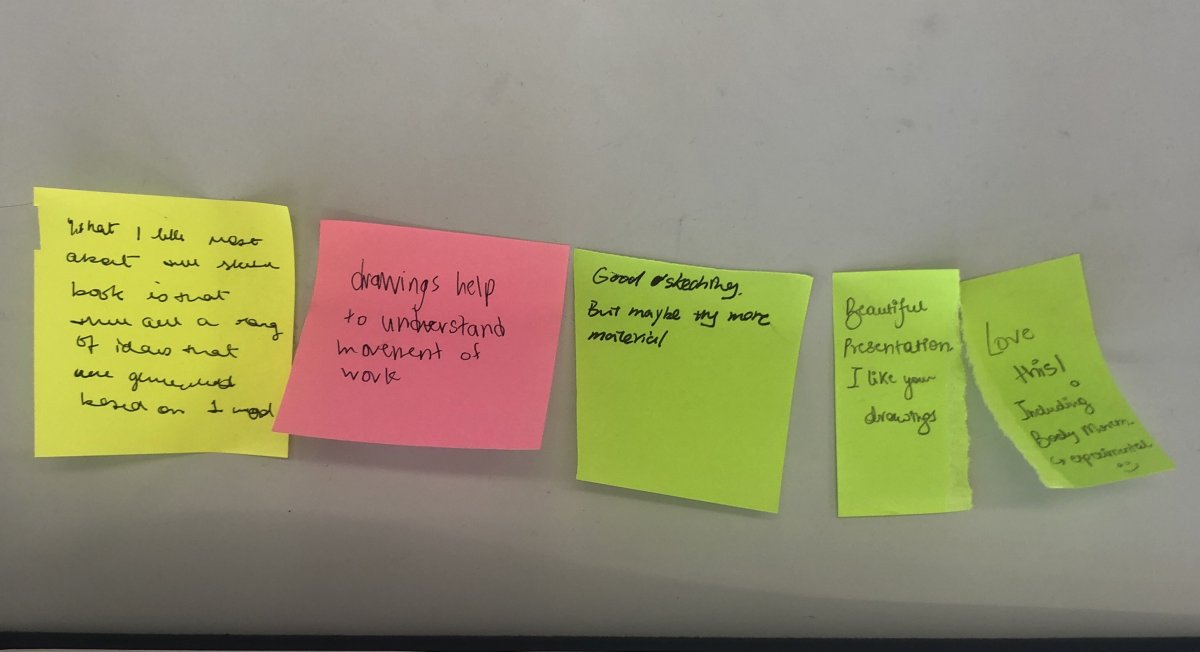 What I like most
about the sketch
book is that
there are a rang
of ideas that
are generated
based on 1 word
drawings help
to understand
movement of
work
Good sketching.
But maybe try more
material
Beautiful
Presentation.
I like your
drawings
Love
this!
Including
Body Movem.
↳ experimental